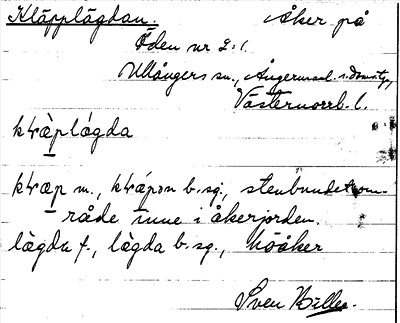 Kläpplägdan. Åker på
Öden nr 2:1.
Ullångers sn., Ångermanl. s. domsity,
Västernorrb. l.
kɫræ̀plǻgda
kɫræp m., kɫrǽpən b. sg., stenbundet om-
råde inne i åkerjorden.
lægdu f., lægda b. sg., höåker
Sven Hülle.